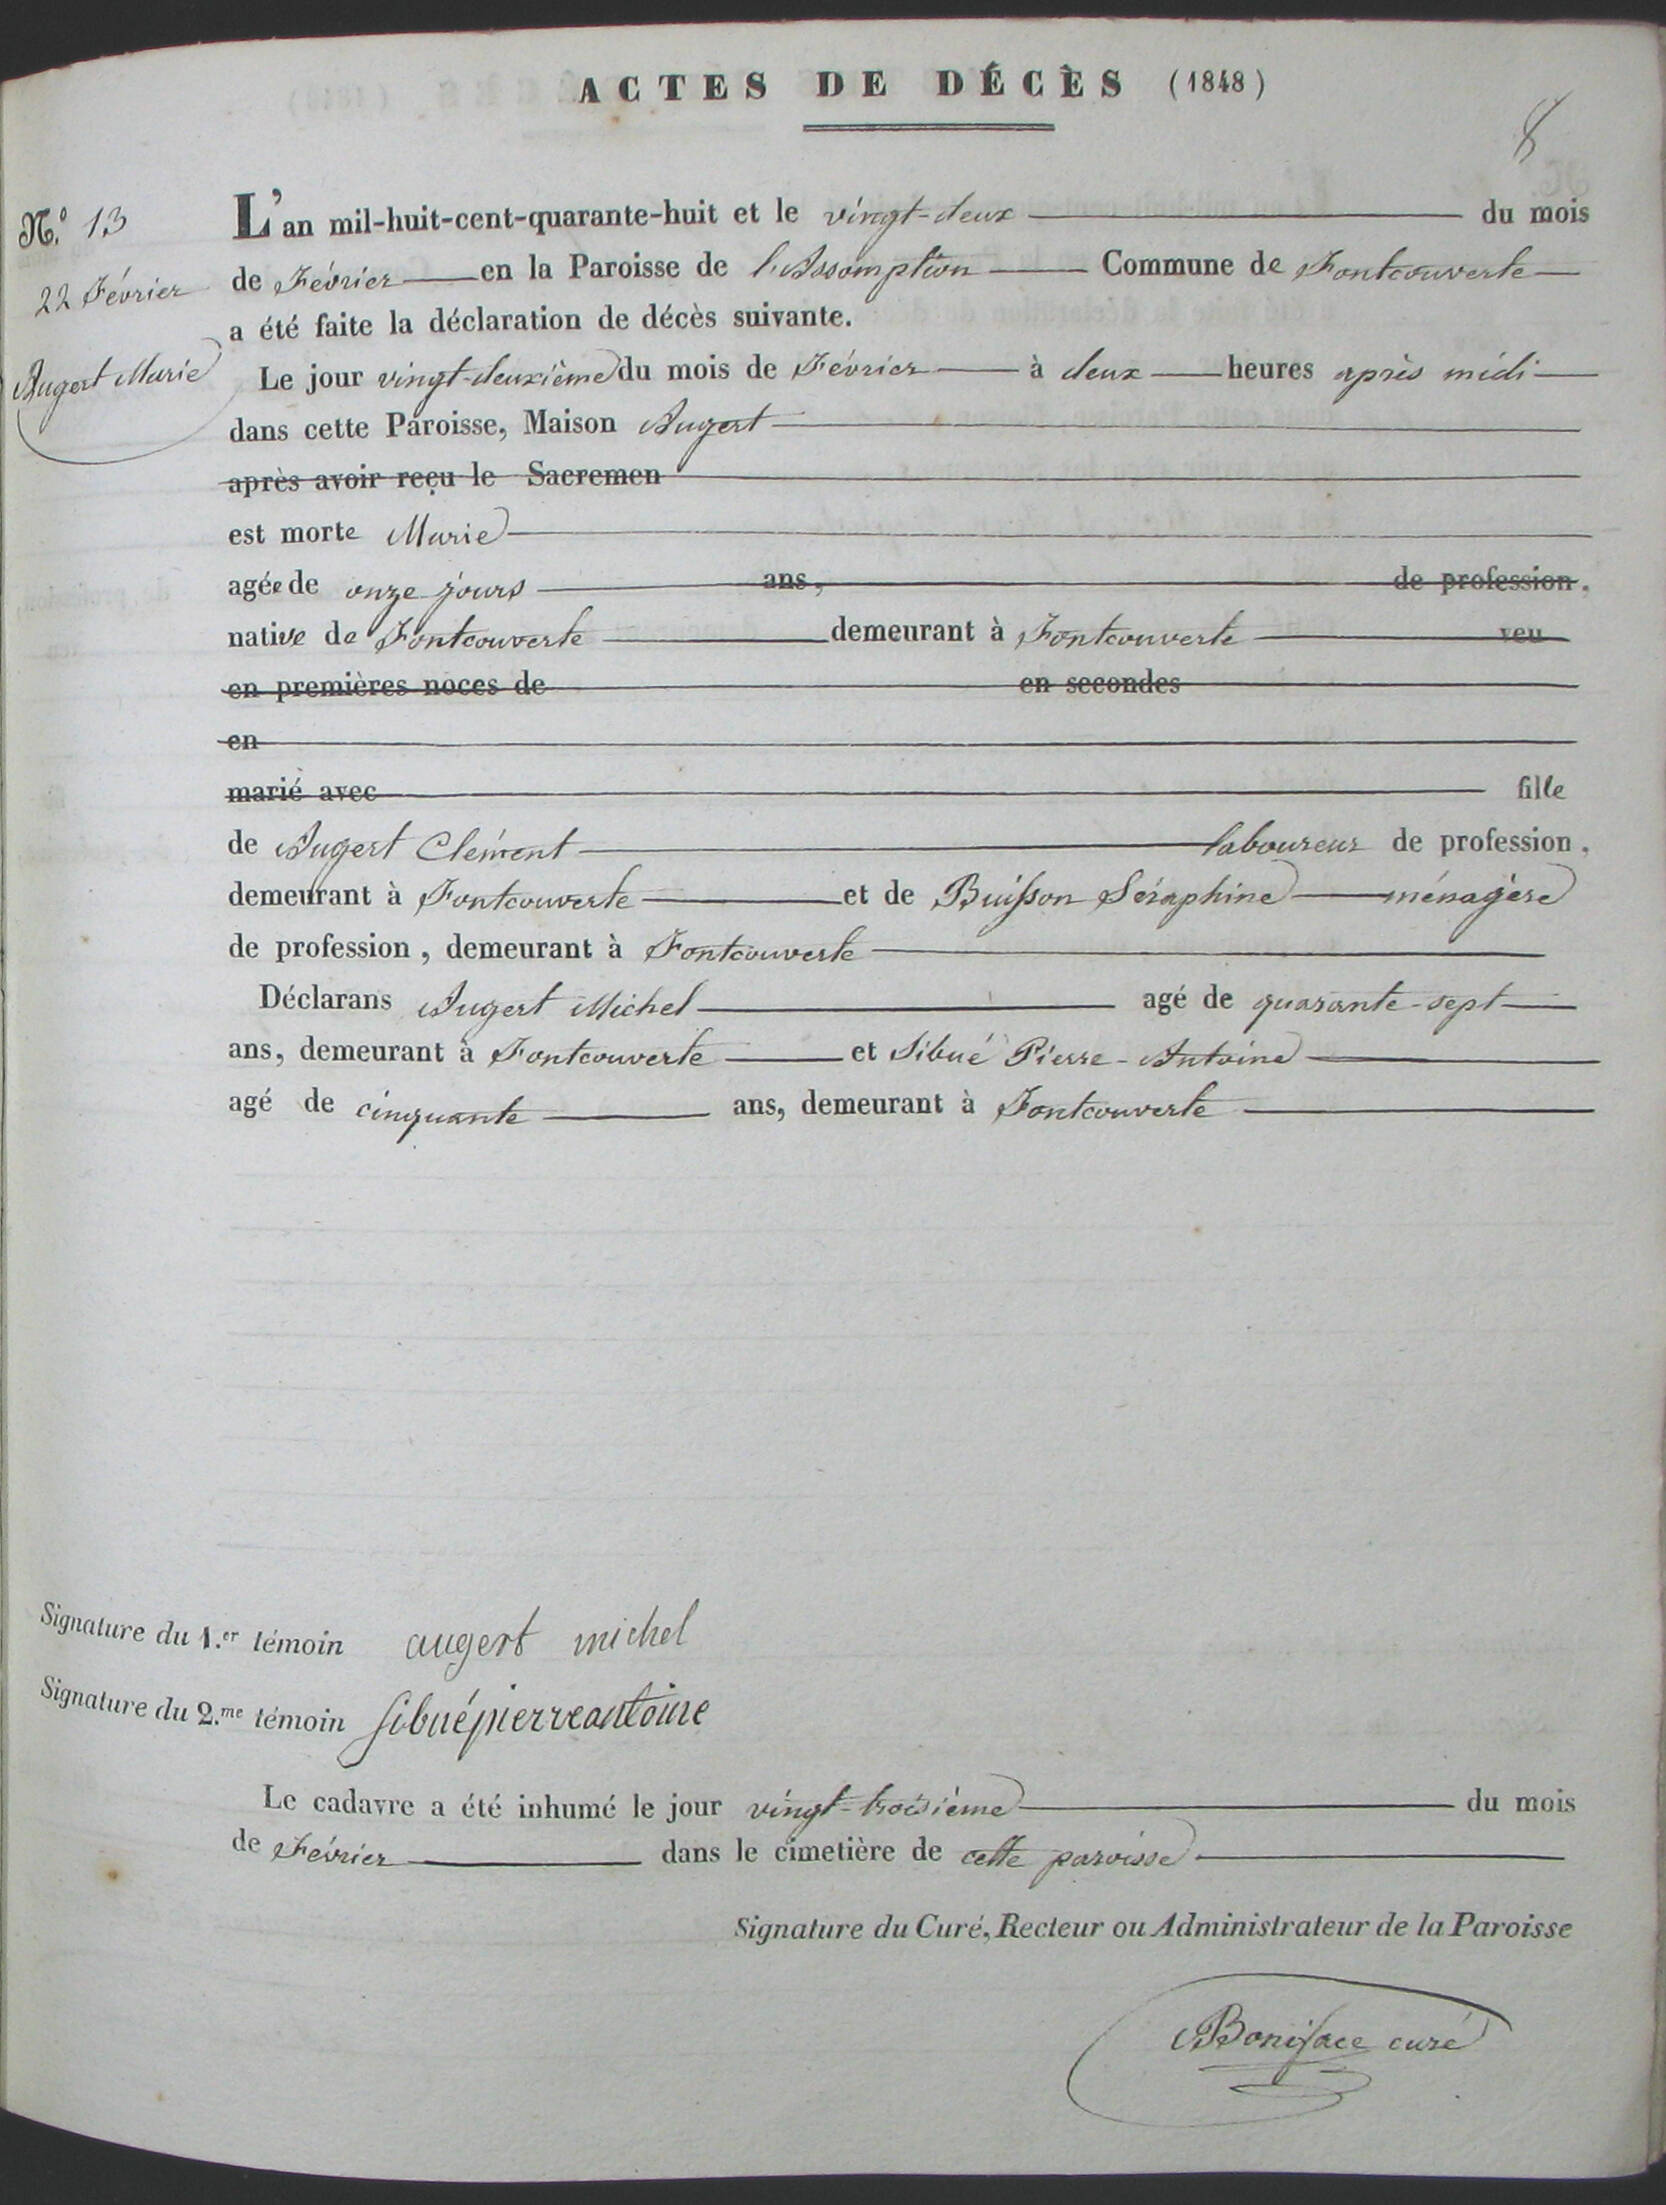 ACTES DE DÉCÈS (1848)
8
N.º 13
22 Février
Augert Marie
L'an mil-huit-cent-quarante-huit et le vingt-deux du mois
de Février en la Paroisse de l'Assomption Commune de Fontcouverte
a été faite la déclaration de décès suivante.
Le jour vingt-deuxième du mois de Février à deux heures après midi
dans cette Paroisse, Maison Augert
après avoir reçu le Sacremen
est morte Marie
agée de onze jours ans, de profession,
native de Fontcouverte demeurant à Fontcouverte veu
en premières noces de en secondes
en
marié avec fille
de Augert Clément laboureur de profession,
demeurant à Fontcouverte et de Buisson Séraphine ménagère
de profession, demeurant à Fontcouverte
Déclarans Augert Michel agé de quarante-sept
ans, demeurant à Fontcouverte et Sibué Pierre-Antoine
agé de cinquante ans, demeurant à Fontcouverte
Signature du 1.er témoin augert michel
Signature du 2.me témoin sibué pierre antoine
Le cadavre a été inhumé le jour vingt-troisième du mois
de Février dans le cimetière de cette paroisse
Signature du Curé, Recteur ou Administrateur de la Paroisse
Boniface curé